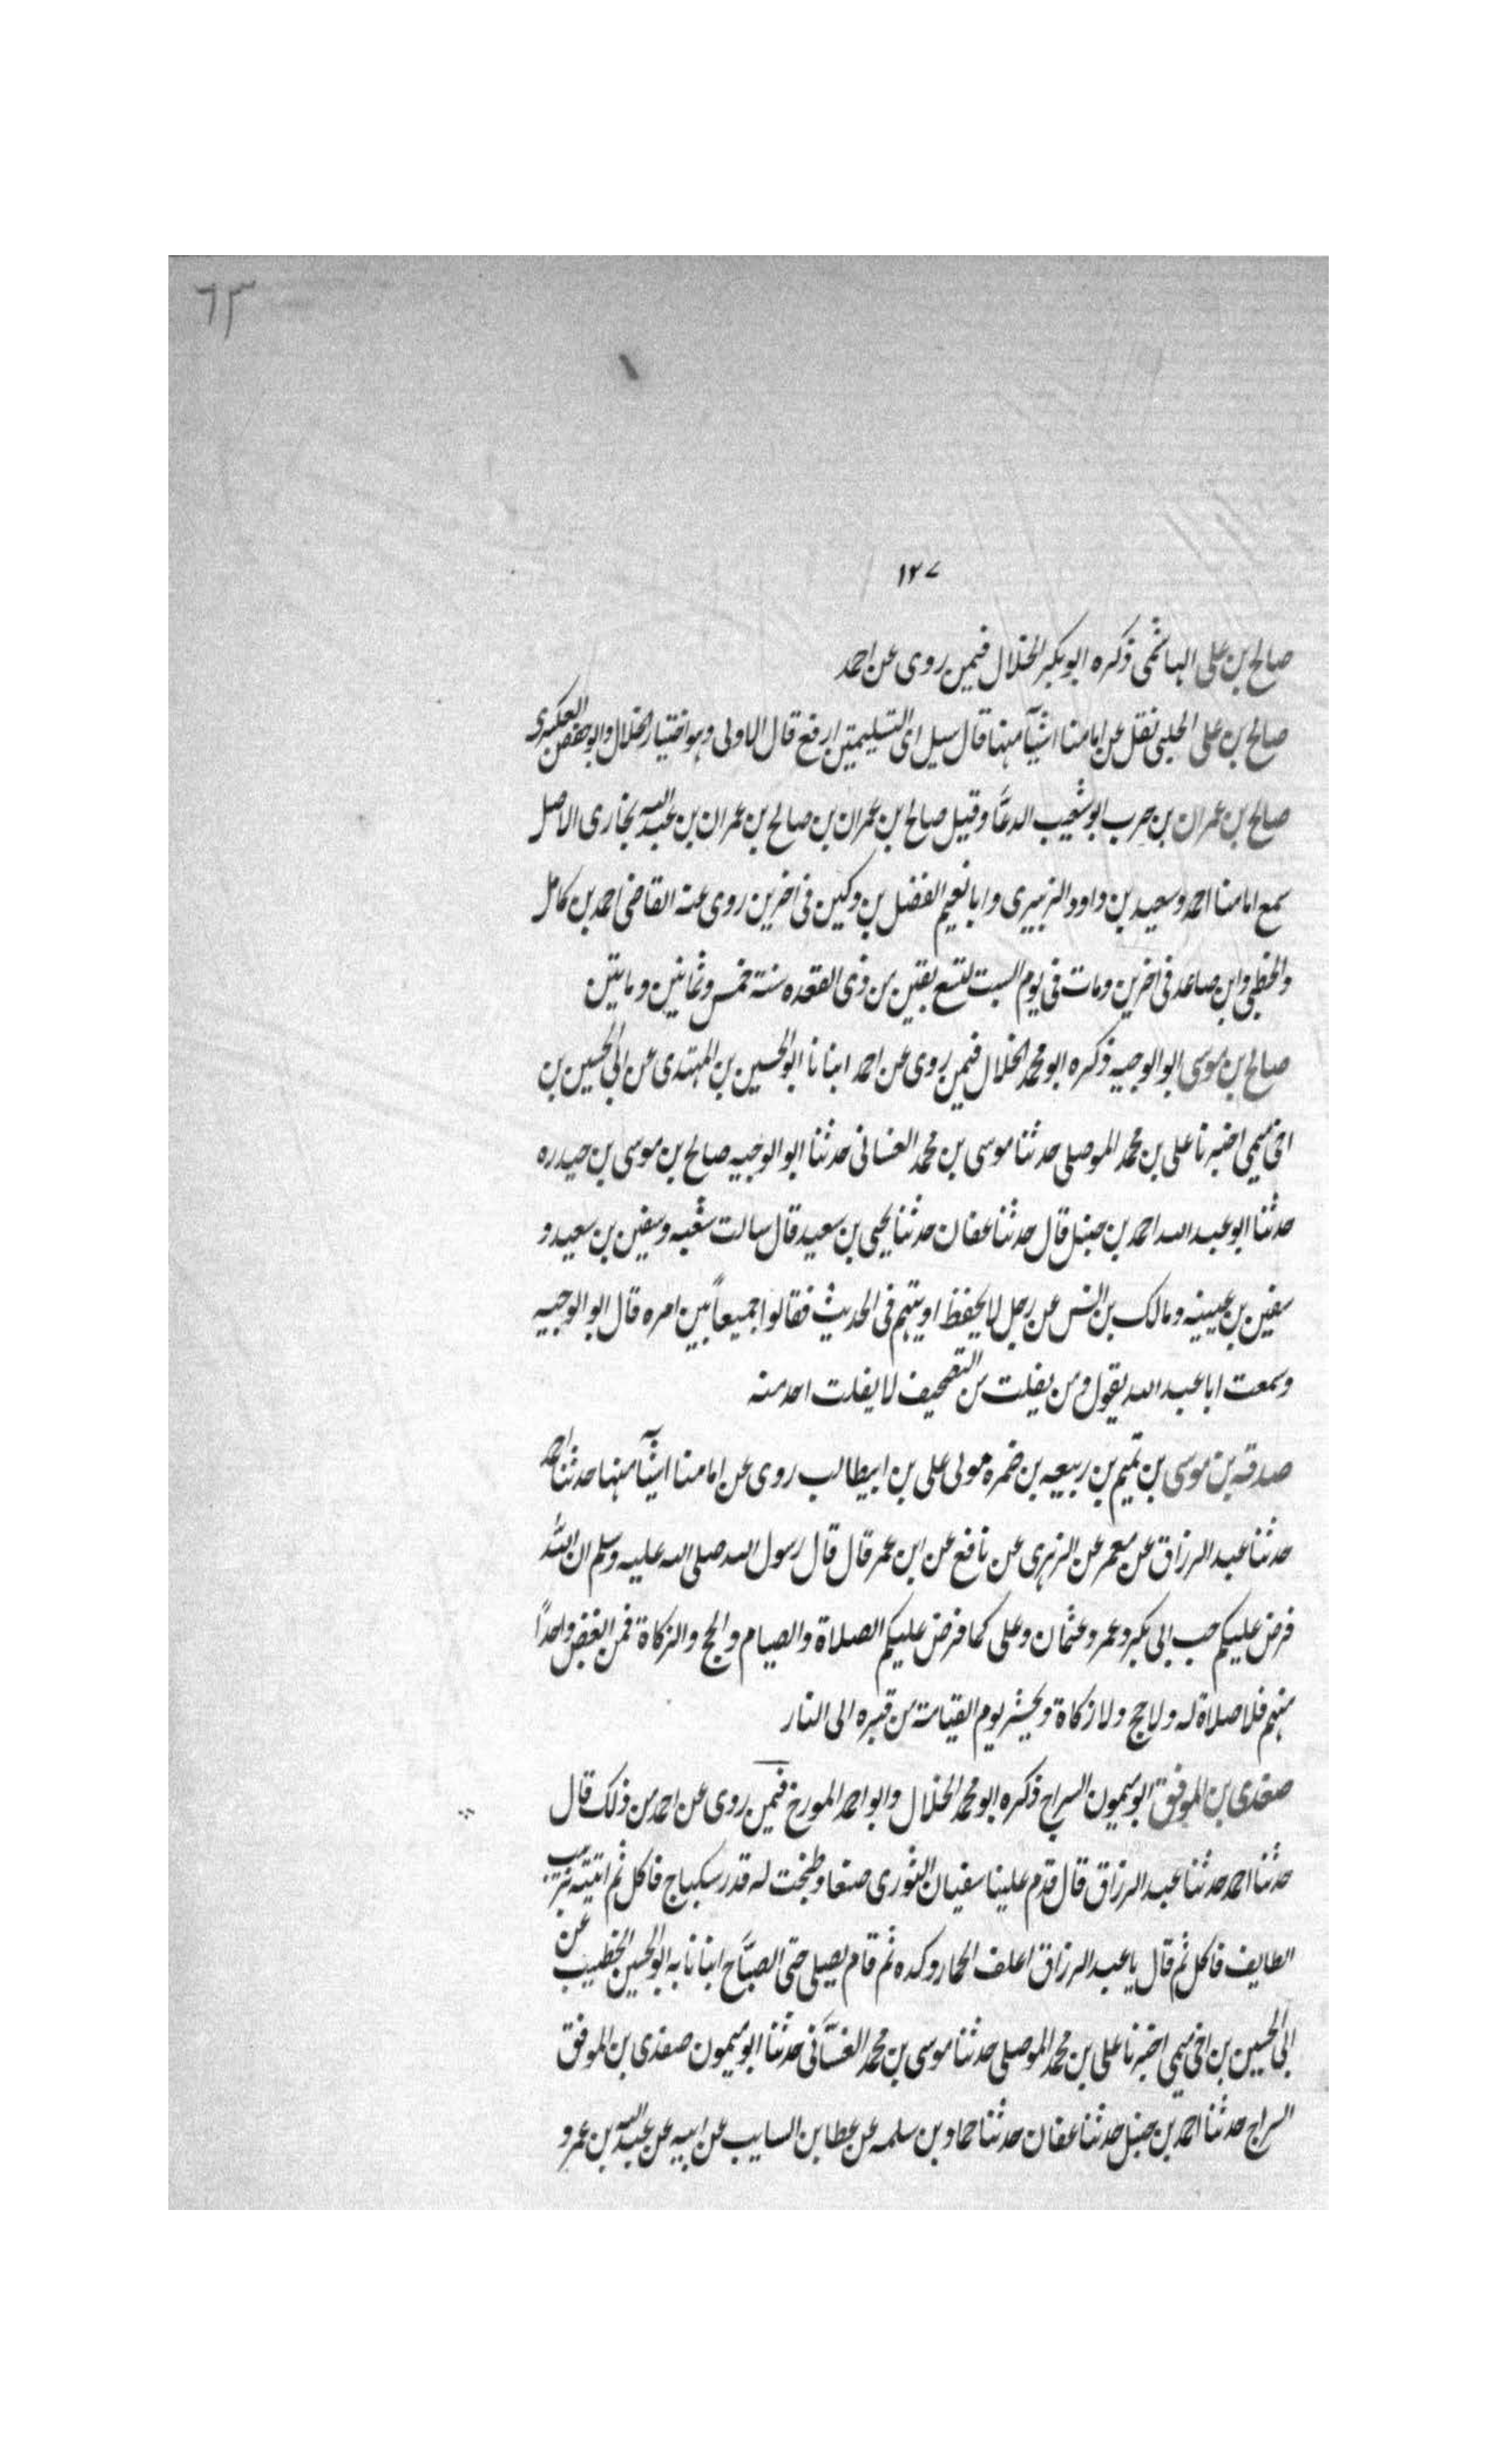 ٦٣
١٢٧
صالح بن على الهاشمى ذكره ابو بكر الخلال فيمن روى عن احمد
صالح بن على الحلبى نقل عن امامنا اشيآ منها قال سيل اى التسليمتين ارفع قال الاولى وهو اختيار الخلال وابو حفص العكبرى
صالح بن عمران بن حرب ابو شعيب الدعَّا وقيل صالح بن عمران بن صالح بن عمران بن عبد الله بخارى الاصل
سمع امامنا احمد وسعيد بن داود الزبيرى وابا نعيم الفضل بن دكين فى اخرين روى عنه القاضى احمد بن كامل
والخطبى وابن صاعد فى اخرين ومات فى يوم السبت لتسع بقين من ذى القعده سنة خمس وثمانين ومايتين
صالح بن موسى ابو الوجيه ذكره ابو محمد الخلال فيمن روى عن احمد انبانا ابو الحسين بن المهتدى عن ابى الحسين بن
اخى ميمى اخبرنا على بن محمد الموصلى حدثنا موسى بن محمد الغسانى حدثنا ابو الوجيه صالح بن موسى بن حيدره
حدثنا ابو عبد الله احمد بن حنبل قال حدثنا عفان حدثنا يحيى بن سعيد قال سالت شعبه وسفين بن سعيد و
سفين بن عيينه ومالك بن انس عن رجل لا يحفظ او يتهم فى الحديث فقالوا جميعاً بين امره قال ابو الوجيه
وسمعت ابا عبد الله يقول ومن يفلت من التصحيف لا يفلت احد منه
صدقه بن موسى بن تميم بن ربيعه بن ضمره مولى على بن ابيطالب روى عن امامنا اشيآ منها حدثنا احمد
حدثنا عبد الرزاق عن معمر عن الزهرى عن نافع عن ابن عمر قال قال رسول الله صلى الله عليه وسلم ان الله
فرض عليكم حب ابى بكر وعمر وعثمان وعلى كما فرض عليكم الصلاة والصيام والحج والزكاة فمن ابغض واحداً
منهم فلا صلاة له ولا حج ولا زكاة ويحشر يوم القيامة من قبره الى النار
صغدى بن الموفق ابو ميمون السراج ذكره ابو محمد الخلال وابو احمد المورخ فيمن روى عن احمد من ذلك قال
حدثنا احمد حدثنا عبد الرزاق قال قدم علينا سفيان الثورى صنعا وطبخت له قدر سكباج فاكل ثم اتيته بزبيب
الطايف فاكل ثم قال يا عبد الرزاق اعلف الحمار وكده ثم قام يصلى حتى الصبَّاح انبانا به ابو الحسين الخطيب عن
ابى الحسين بن اخى ميمى اخبرنا على بن محمد الموصلى حدثنا موسى بن محمد الغسَّانى حدثنا ابو ميمون صغدى بن الموفق
السراج حدثنا احمد بن حنبل حدثنا عفان حدثنا حماد بن سلمه عن عطا بن السايب عن ابيه عن عبد الله بن عمرو